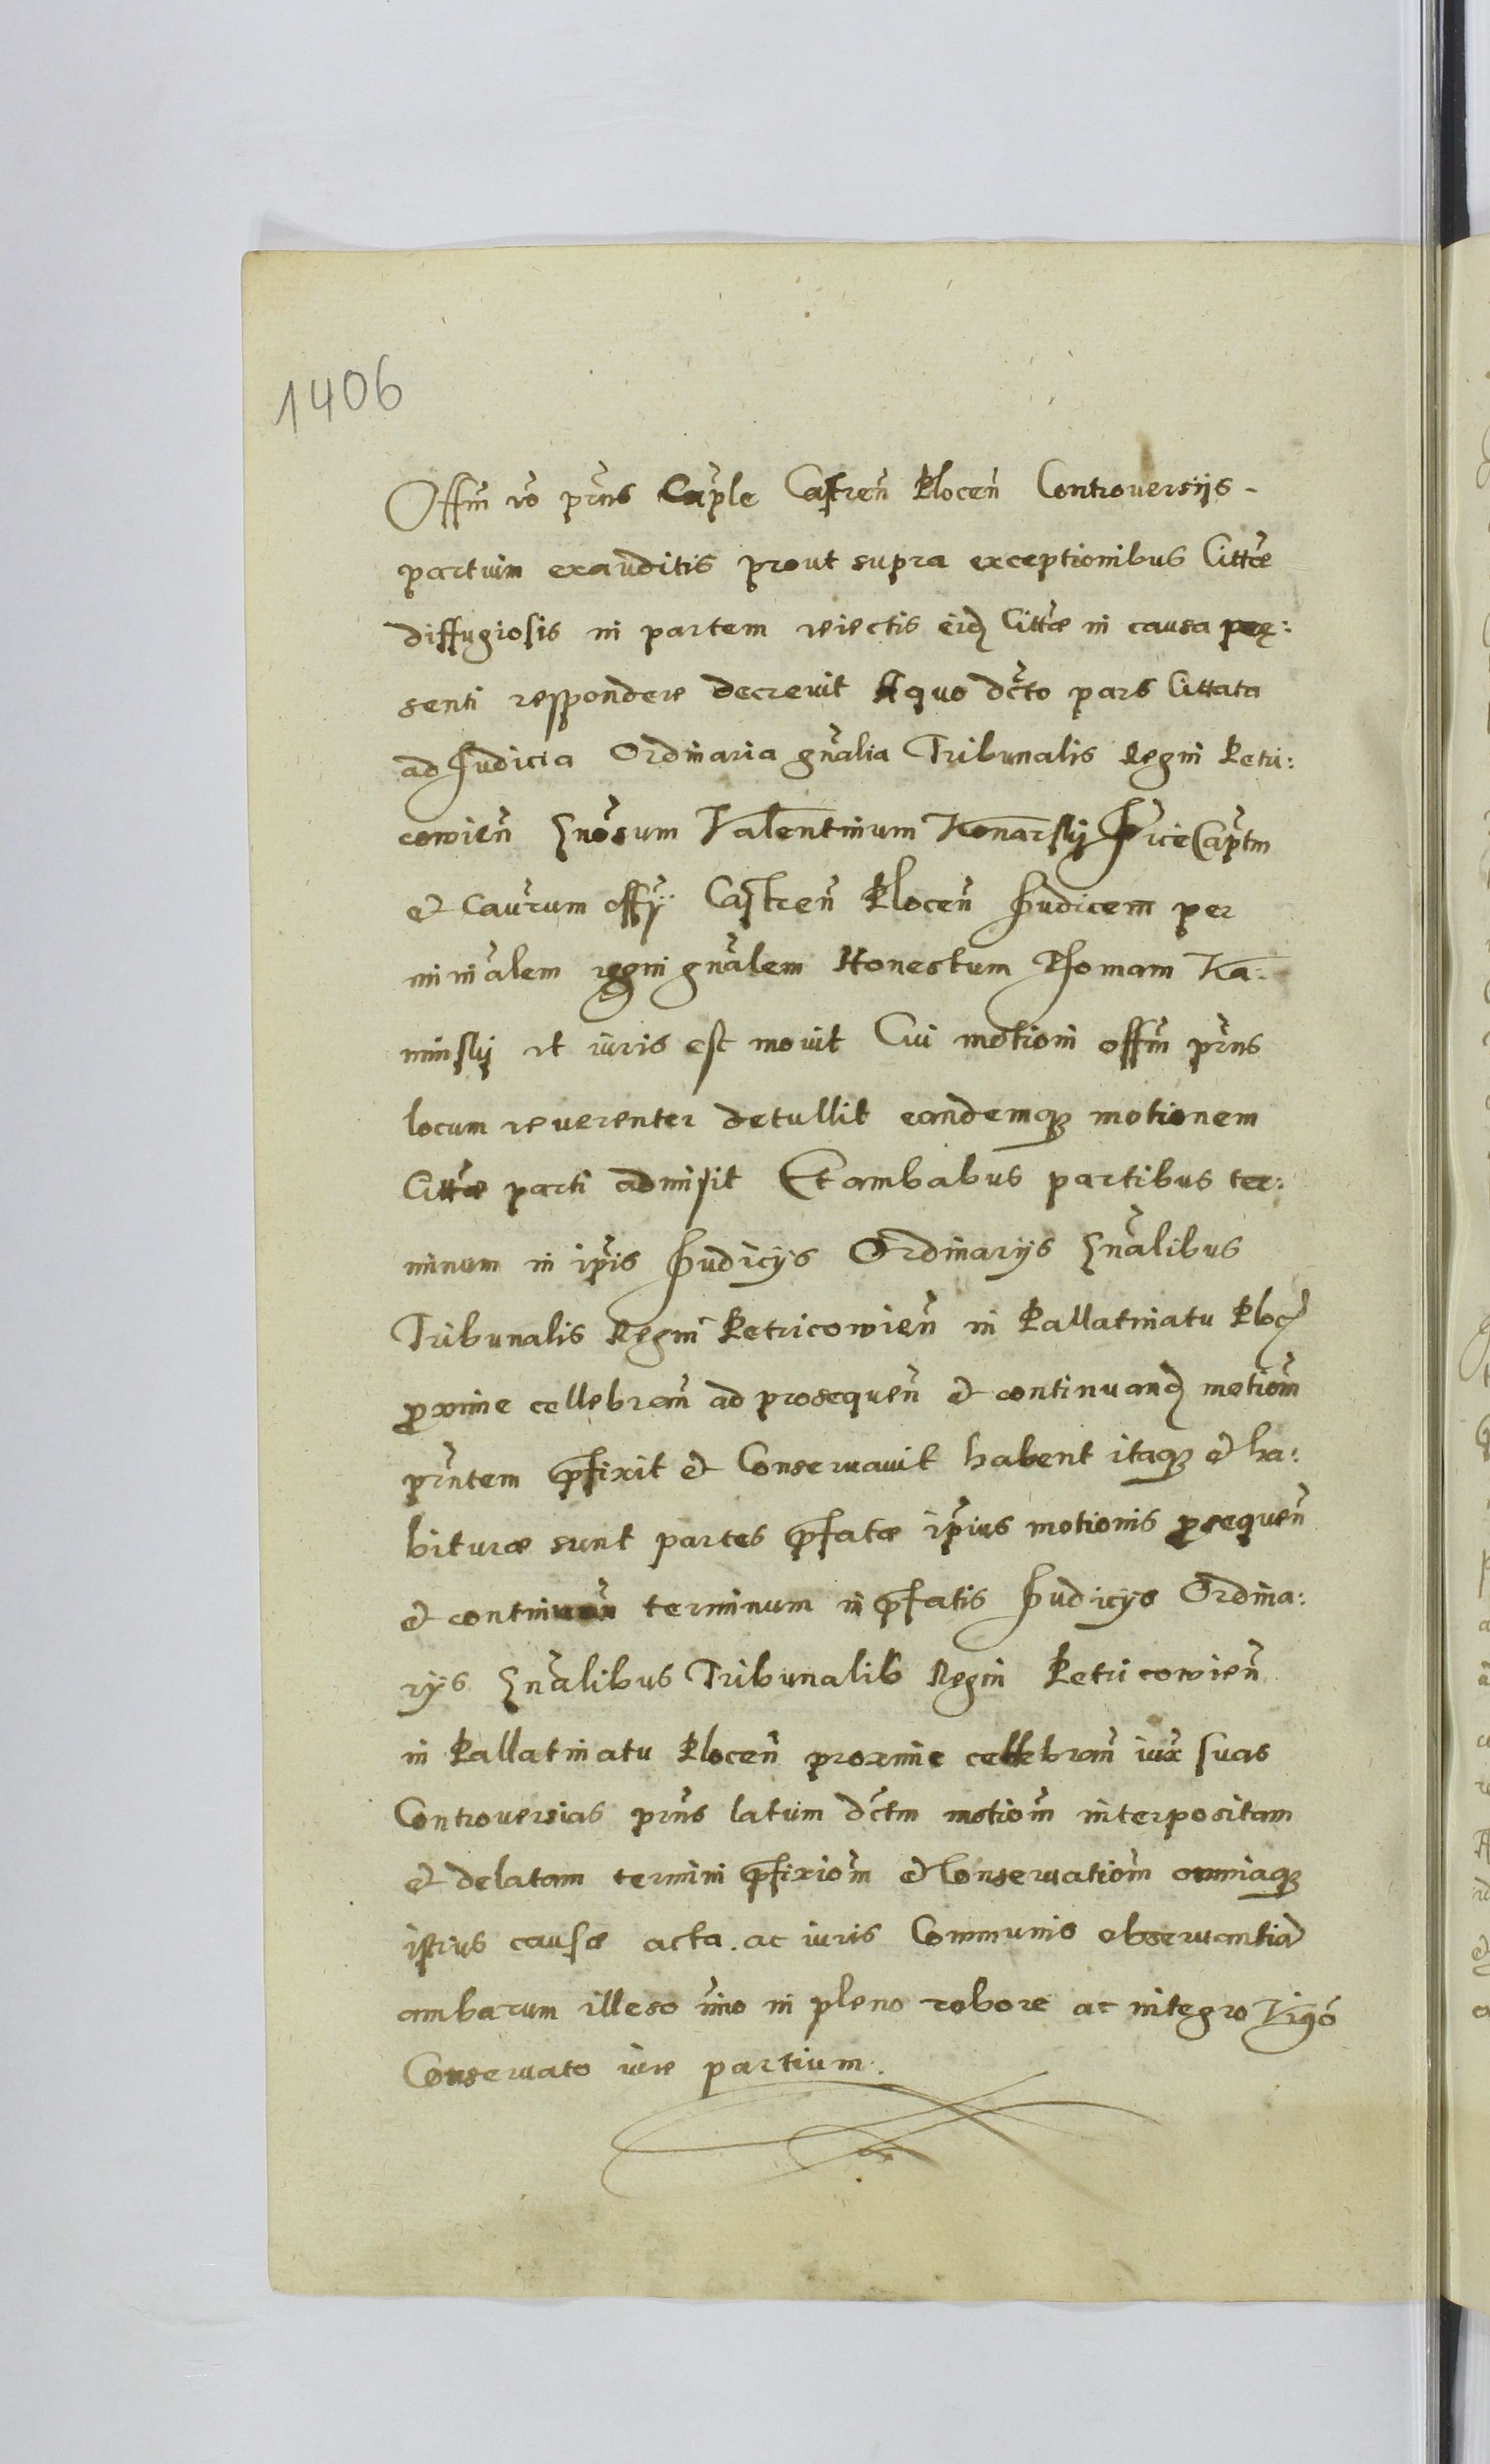 1406
Offm̃ vo pñns Cap̃le Castreñ Plocen̄ Controversijs -
partium exauditis prout supra exceptionibus Citt̃æ
diffugiosis in partem reiectis eid Citt̃æ in causa præ:
senti respondere decrevit A quo dc̃to pars Cittata
ad Judicia Ordinaria gñalia Tribunalis Regni Petri:
covieñ Gnõsum Valentinum Konarskj Vice Cap̃tm
et Caũrum offÿ Castreñ Ploceñ Judicem per
minĩalem regni gñalem Honestum Thomam Ka:
minskj vt iuris est movit Cui motioni offm̃ pñns
locum reverenter detullit eandemq motionem
Citt̃æ parti admisit Et ambabus partibus ter:
minum in ip̃is Judicijs Ordinarijs Gñalibus
Tribunalis Regni Petricowieñ in Pallatinatu Ploc
proxime cellebrañ ad prosequeñ et continuand motiom̃
pñntem præfixit et Conservavit habent itaq et ha:
bituræ sunt partes præfatæ ip̃ius motionis prosequeñ
et continuañ terminum in præfatis Judicijs Ordina:
rijs Gñalibus Tribunalib Regni Petricowieñ
in Pallatinatu Ploceñ proxime cellebrañ iux̃ suas
Controversias pñns latum dc̃tm motiom̃ interpositam
et delatam termini præfixiom̃ et Conservatiom̃ omniaq
istius causæ acta. ac iuris Communis observantia
ambarum illeso im̃o in pleno robore ac integro Vigõ
Conservato iure partium.